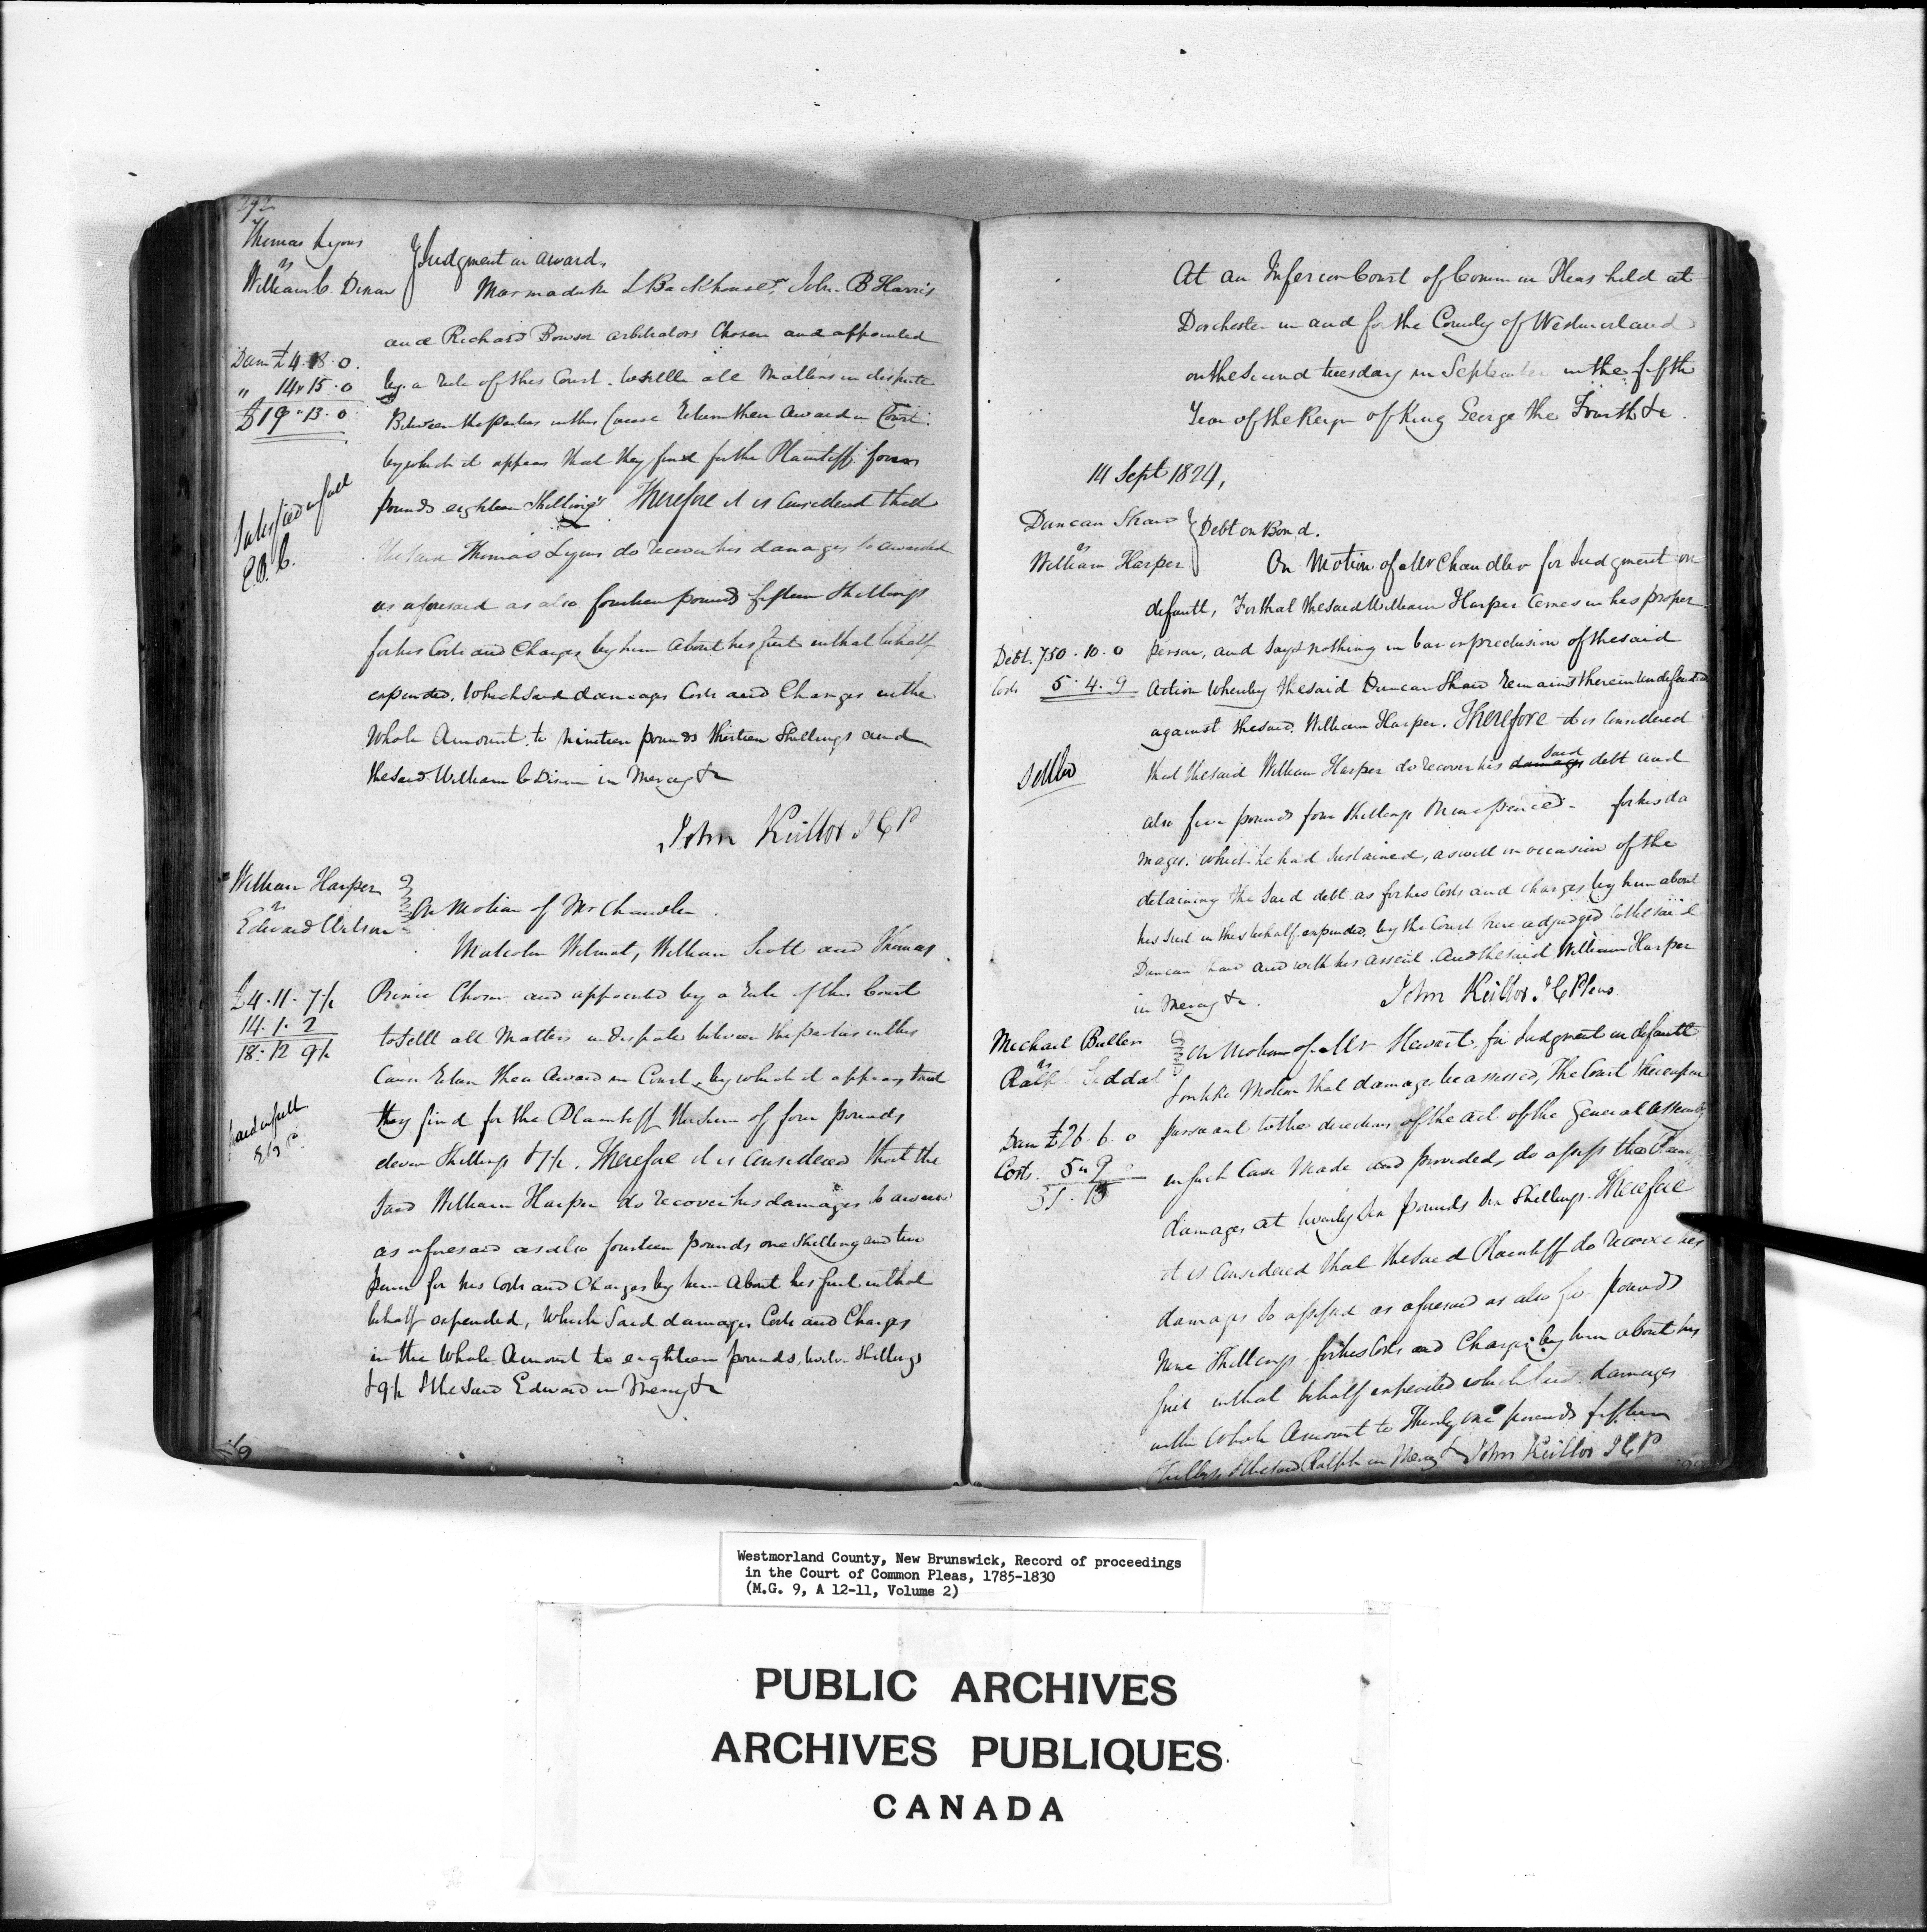 292
Thomas Lyons
vs
William C. Dixon
Judgment on award.
Marmaduke L Backhouse, John B Harris
and Richard Bowser arbitrators Chosen and appointed
by a rule of this Court. to settle all Matters in dispute
Between the parties in this Cause Return their Award in Court
by which it appears that they find for the Plaintiff four
pounds eighteen Shillings Therefore it is Considered that
the said Thomas Lyons do recover his damages so awarded
as aforesaid as also fourteen pounds fifteen Shillings
for his Costs and Charges by him About his Suit in that behalf
expended. Which said damages Costs and Charges in the
Whole Amount to Nineteen pounds thirteen Shillings and
the said William C Dixon in Mercy &c
Dam £4.18.0.
" 14.15.0
£19"13.0
Satisfied in full
E.B.C.
John Keillor J C P
William Harper
vs
Edward Wilson
On Motion of Mr Chandler.
Malcolm Wilmot, William Scott and Thomas
Prince Chosen and appointed by a rule of this Court
to Settle all Matters in dispute between the parties in this
Cause Return their Award in Court, by which it appears that
they find for the Plaintiff the sum of four pounds
eleven Shillings & 7½. Therefore it is Considered that the
said William Harper do recover his damages so awarded
as aforesaid as also fourteen pounds one Shilling and two
pence for his Costs and Charges by him About his Suit in that
behalf expended, Which Said damages Costs and Charges
in the Whole Amount to eighteen pounds, twelve Shillings
& 9½ & the said Edward in Mercy &c
£4.11.7½
14.1.2
18.12 9½
paid in full
At an Inferior Court of Common Pleas held at
Dorchester in and for the County of Westmorland
on the Second tuesday in September in the fifth
Year of the Reign of King George the Fourth &c.
14 Sept 1824,
Duncan Shaw
vs
William Harper
Debt on Bond.
On Motion of Mr Chandler for Judgment on
default, For that the said William Harper Comes in his proper
person, and says nothing in bar or preclusion of the said
Action Whereby the said Duncan Shaw Remains therein undefended
against the said William Harper. Therefore it is Considered
that the said William Harper do recover his damages said debt and
also five pounds four Shillings Nine pence - for his da
mages. which he had Sustained, as well on occasion of the
detaining the said debt as for his Costs and charges by him about
his Suit in this behalf expended, by the Court here adjudged to the said
Duncan Shaw and with his assent. And the said William Harper
in Mercy &c.
Debt. 750.10.0
Costs 5.4.9
Settled
John Keillor J C Pleas
Michael Bullen
vs
Ralph Siddal
On Motion of Mr Stewart, for Judgment on default
& on like Motion that damages be assessed, The Court thereupon
pursuant to the directions of the act of the General Assembly
in such Case Made and provided, do assess the
damages at twenty six pounds six Shillings. Therefore
it is Considered that the said Plaintiff do recover his
damages so assessed as aforesaid as also five pounds
Nine Shillings for his Costs and Charges by him about his
Suit in that behalf expended which said damages
in the Whole Amount to Thirty one pounds fifteen
Shillings & the said Ralph in Mercy &c John Keillor J C P
Dam £26.6.0
Costs. 5"9
31.15
Westmorland County, New Brunswick, Record of proceedings
in the Court of Common Pleas, 1785-1830
(M.G. 9, A 12-11, Volume 2)
PUBLIC ARCHIVES
ARCHIVES PUBLIQUES
CANADA